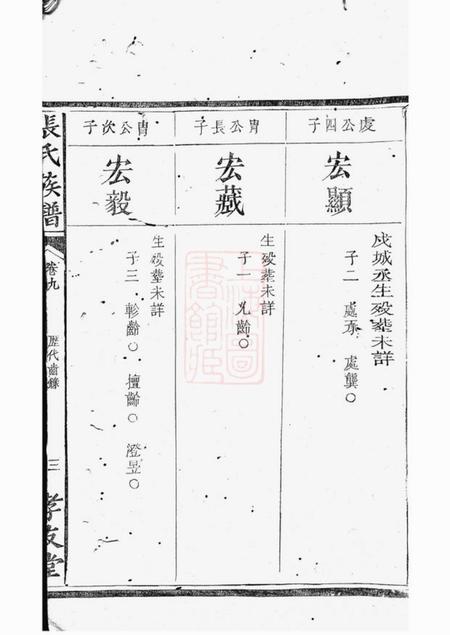 處公四子
宏顯
戍城丞生歿塟未詳
子二 處亦 處龔○
胄公長子
宏藏
生歿塟未詳
子一 允齡○
胄公次子
宏毅
生歿塟未詳
子三 軫齡○ 擅齡○ 澄昱○
張氏族譜
卷九
歷代齒錄
三
孝友堂